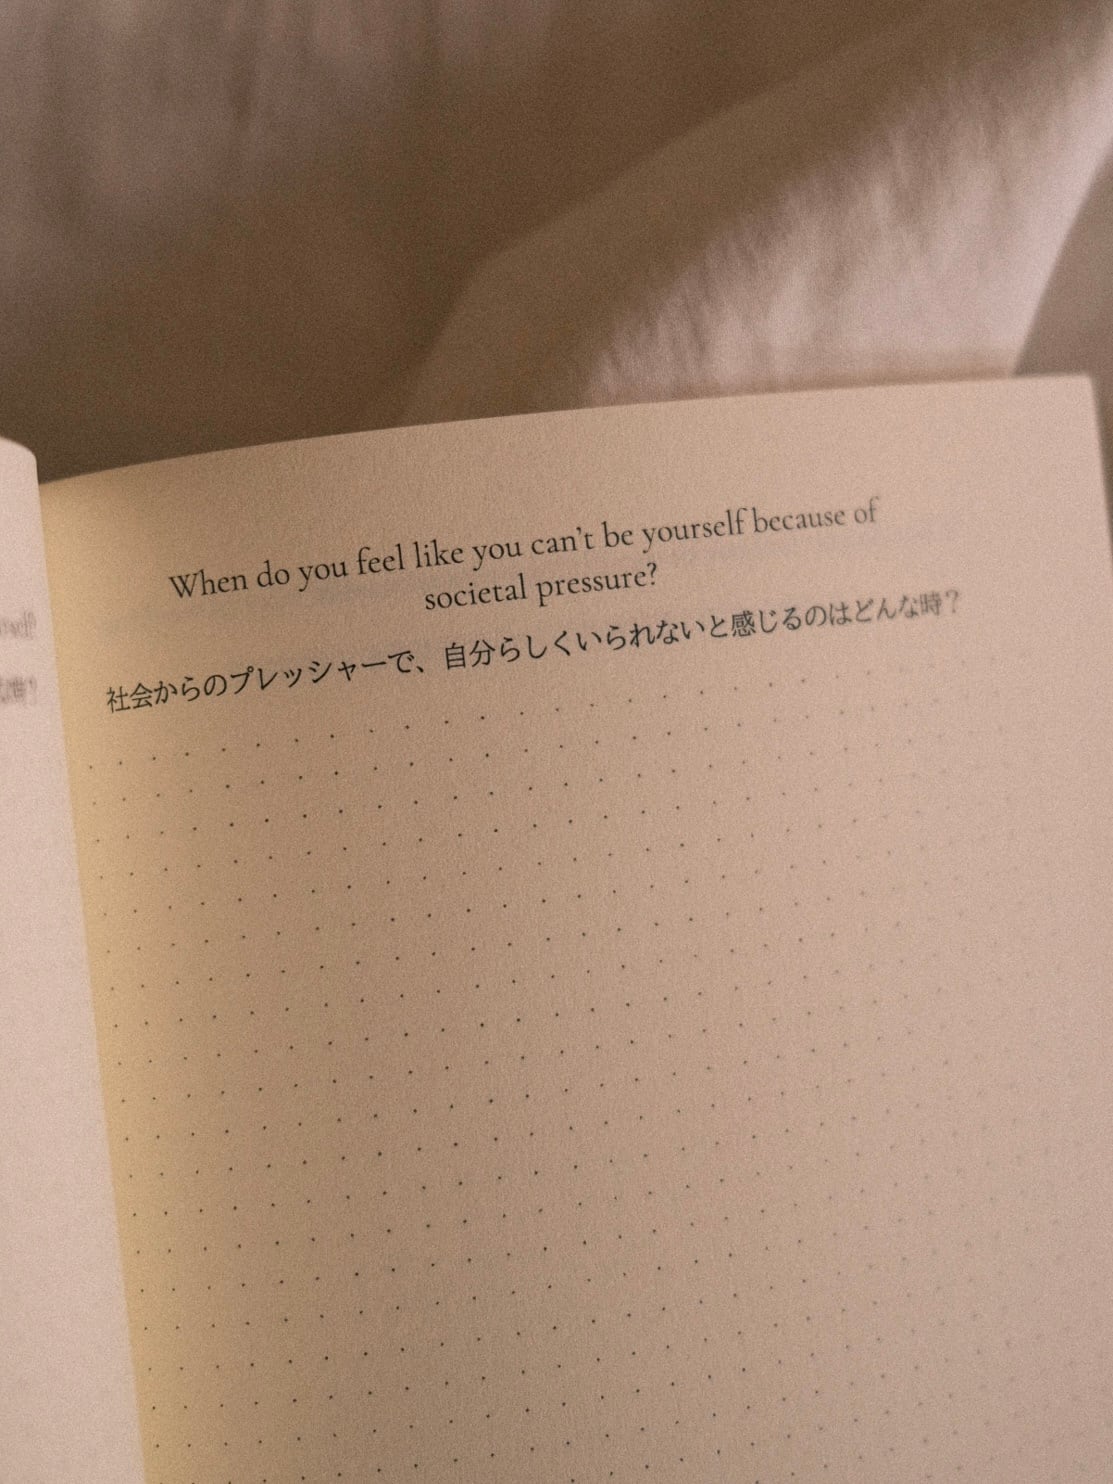 When do you feel like you can't be yourself because of
societal pressure?
社会からのプレッシャーで、自分らしくいられないと感じるのはどんな時？